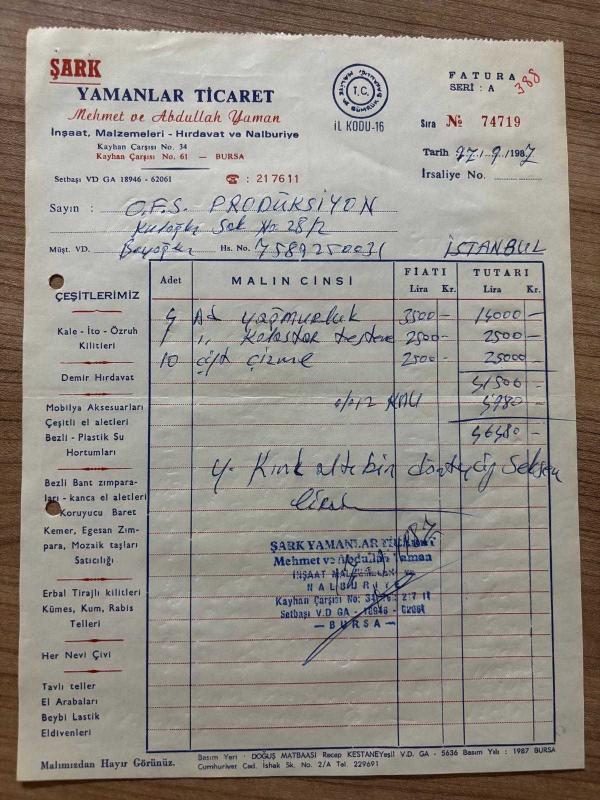 ŞARK
YAMANLAR TİCARET
Mehmet ve Abdullah Yaman
İnşaat, Malzemeleri - Hırdavat ve Nalburiye
Kayhan Çarşısı No. 34
Kayhan Çarşısı No. 61 — BURSA
Setbaşı VD GA 18946 - 62061
☎ : 217611
T.C.
MALİYE VE GÜMRÜK BAKANLIĞI
İL KODU-16
FATURA
SERİ : A
388
Sıra № 74719
Tarih 27/9/1987
İrsaliye No.
Sayın : O.F.S. PRODÜKSİYON
Kuloğlu Sok No 28/2
Müşt. VD. Beyoğlu Hs. No. 7589250031 İSTANBUL
Adet MALIN CİNSİ FİATI Lira Kr. TUTARI Lira Kr.
4 Ad yağmurluk 3500 — 14000 —
1 " testere 2500 — 2500 —
10 çift çizme 2500 — 25000 —
41500 —
%12 KDV 4980 —
46480 —
Y- Kırk altı bin dörtyüz seksen
lira
ÇEŞİTLERİMİZ
Kale - İto - Özruh
Kilitleri
Demir Hırdavat
Mobilya Aksesuarları
Çeşitli el aletleri
Bezli - Plastik Su
Hortumları
Bezli Bant zımpara-
ları - kanca el aletleri
Koruyucu Baret
Kemer, Egesan Zım-
para, Mozaik taşları
Satıcılığı
Erbal Tirajlı kilitleri
Kümes, Kum, Rabis
Telleri
Her Nevi Çivi
Tavlı teller
El Arabaları
Beybi Lastik
Eldivenleri
ŞARK YAMANLAR TİCARET
Mehmet ve Abdullah Yaman
İNŞAAT
NALBURİYE
Kayhan Çarşısı No: 34
Setbaşı V.D GA - 18946 - 62061
— BURSA —
Malımızdan Hayır Görünüz.
Basım Yeri - DOĞUŞ MATBAASI Recep KESTANEYeşil V.D. GA - 5636 Basım Yılı : 1987 BURSA
Cumhuriyet Cad. İshak Sk. No. 2/A Tel. 229691